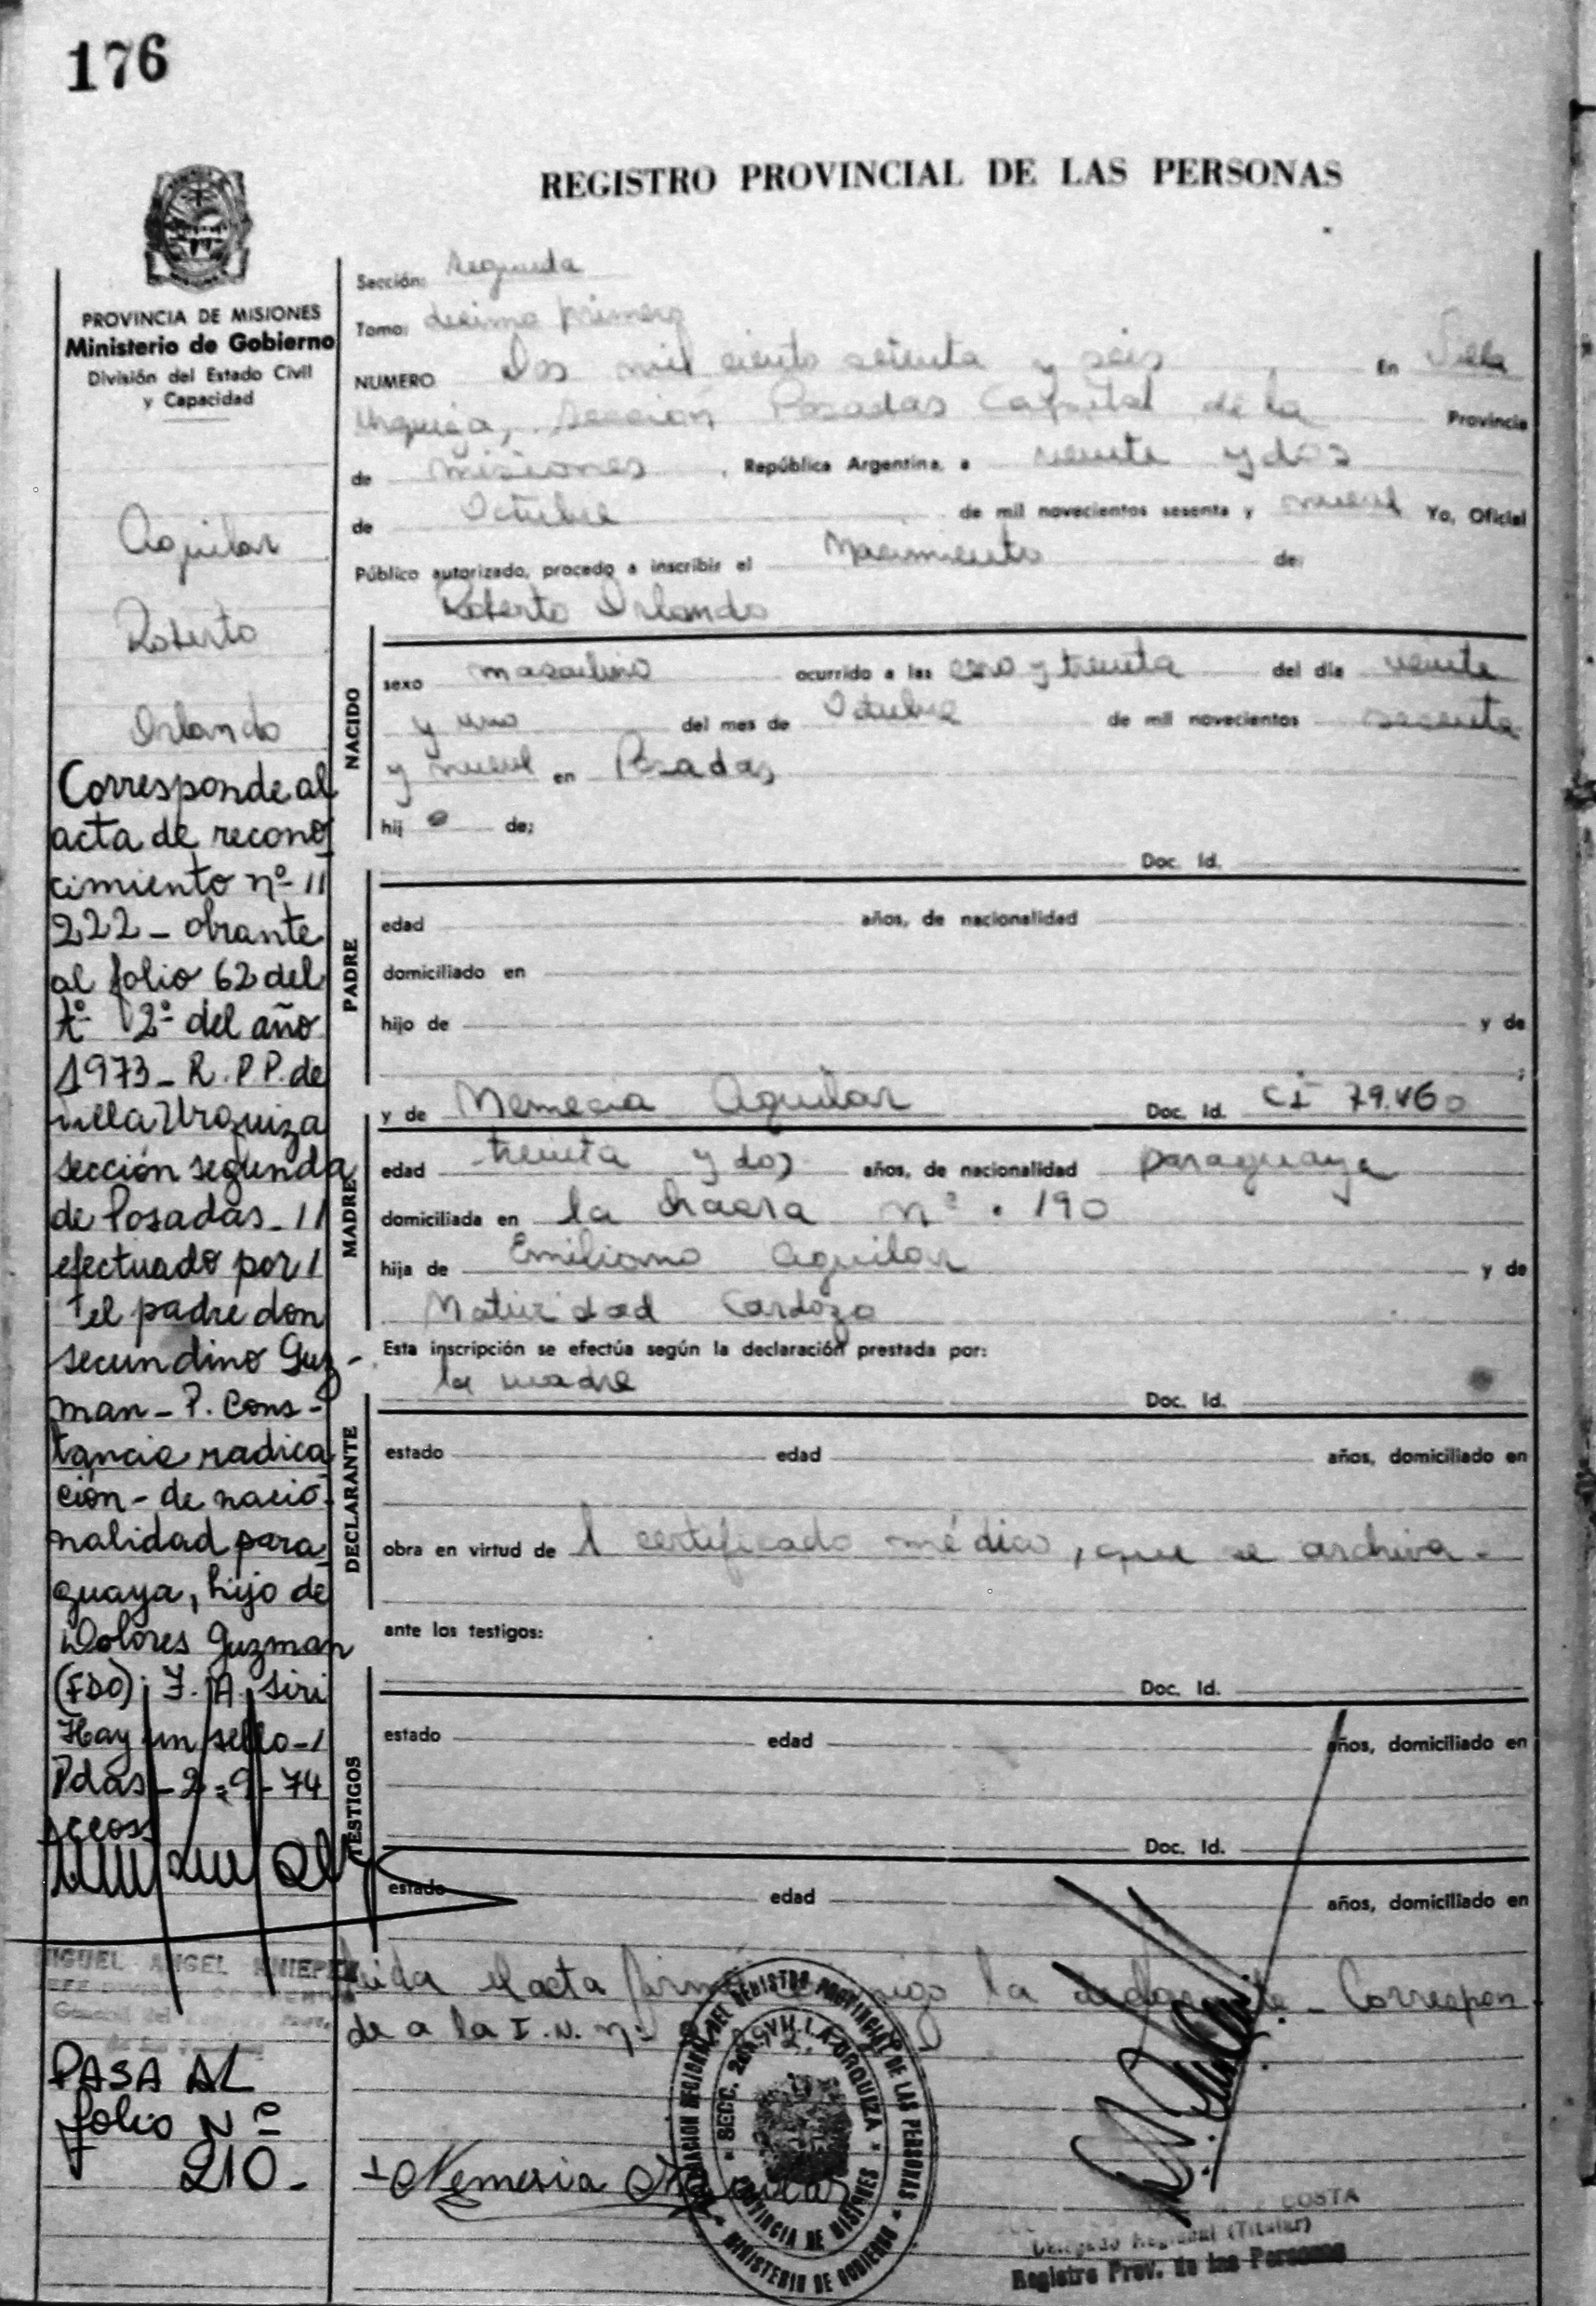 176
REGISTRO PROVINCIAL DE LAS PERSONAS
PROVINCIA DE MISIONES
Ministerio de Gobierno
División del Estado Civil
y Capacidad
Aguilar
Roberto
Orlando
Corresponde al
acta de recono
cimiento nº 11
222 - obrante
al folio 62 del
tº 2º del año
1973 - R.P.P. de
villa Urquiza
sección segunda
de Posadas - //
efectuado por /
el padre don
secundino Guz-
man - P. Cons-
tancia radica
ción - de nacio
nalidad para
guaya, hijo de
Dolores Guzman
(FDO): J. A. Siri
Hay un sello - /
Pdas - 2 = 9 - 74
MIGUEL ANGEL
PASA AL
folio Nº
210 -
Sección: segunda
Tomo: decimo primero
NUMERO Dos mil ciento setenta y seis En Villa
Urquiza, sección Posadas Capital de la Provincia
de Misiones, República Argentina, a veinte y dos
de Octubre de mil novecientos sesenta y nueve Yo, Oficial
Público autorizado, procedo a inscribir el Nacimiento de:
Roberto Orlando
NACIDO
sexo masculino ocurrido a las cero y treinta del día veinte
y uno del mes de Octubre de mil novecientos sesenta
y nueve en Posadas
hijo de:
Doc. Id.
PADRE
edad años, de nacionalidad
domiciliado en
hijo de y de
;
MADRE
y de Nemecia Aguilar Doc. Id. CI 79.460
edad treinta y dos años, de nacionalidad paraguaya
domiciliada en la chacra nº . 190
hija de Emiliano Aguilar y de
Natividad Cardozo
Esta inscripción se efectúa según la declaración prestada por:
la madre Doc. Id.
DECLARANTE
estado edad años, domiciliado en
obra en virtud de 1 certificado médico, que se archiva.
ante los testigos:
Doc. Id.
TESTIGOS
estado edad años, domiciliado en
Doc. Id.
estado edad años, domiciliado en
Leida el acta firmó conmigo la declarante - Correspon
de a la I.N. nº
Nemesia Aguilar
DELEGACION REGIONAL DEL REGISTRO PROVINCIAL DE LAS PERSONAS
SECC. 2da. VILLA URQUIZA
PROVINCIA DE MISIONES
MINISTERIO DE GOBIERNO
COSTA
Delegado Regional (Titular)
Registro Prov. de las Personas